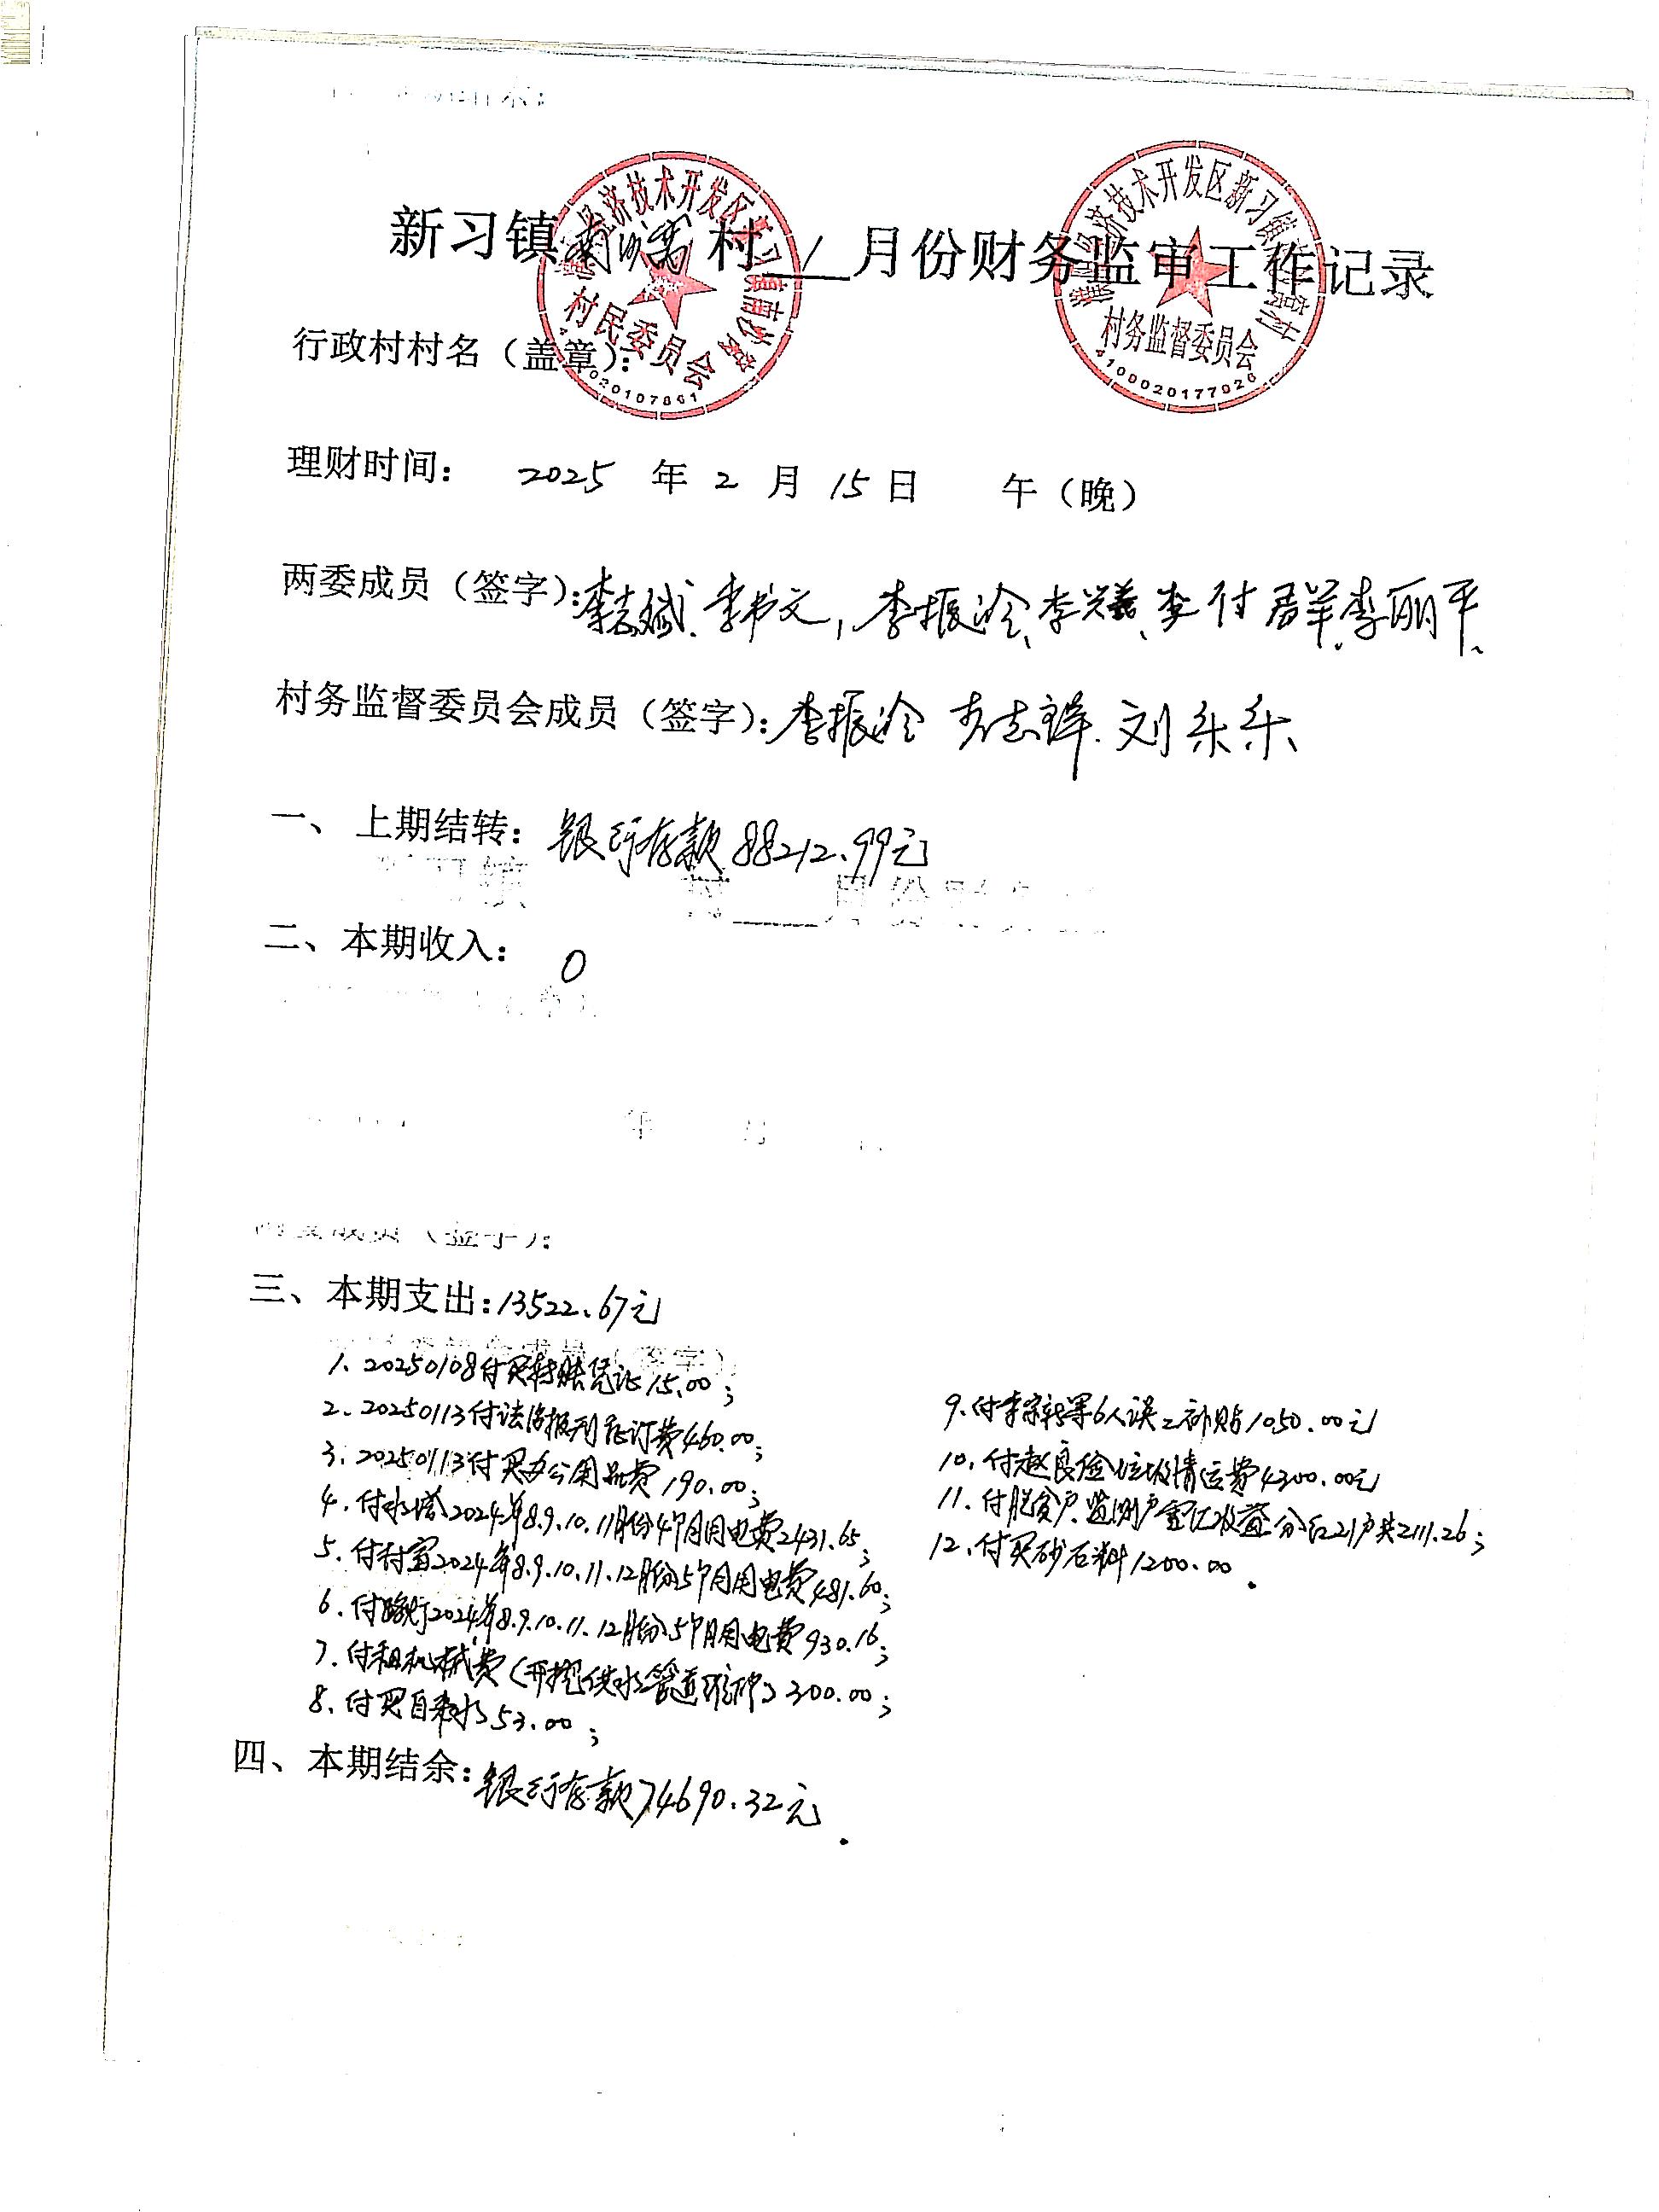 新习镇南沙窝村 1 月份财务监审工作记录
濮阳经济技术开发区新习镇南沙窝
村民委员会
濮阳经济技术开发区新习镇南沙窝村
村务监督委员会
4100020177926
行政村村名（盖章）：
理财时间： 2025 年 2 月 15 日 午（晚）
两委成员（签字）：李志斌、李书文，李振冷、李兴义、李付群、李丽平、
村务监督委员会成员（签字）：李振冷 李志锋. 刘乐乐、
一、上期结转：银行存款88212.99元
二、本期收入： 0
三、本期支出：13522.67元
1、20250108付买转账凭证15.00；
2、20250113付法治报刊征订费460.00；
3、20250113付买办公用品费190.00；
4.付水塔2024年8.9.10.11月份4个月用电费2431.65；
5.付村室2024年8.9.10.11.12月份5个月用电费481.60；
6.付路灯2024年8.9.10.11.12月份5个月用电费930.16；
7.付租机械费（开挖供水管道）300.00；
8.付买自来水353.00；
9.付李 6人误工补贴1050.00元
10.付赵良俭垃圾清运费4300.00元
11.付脱贫户.监测户 收益分红21户共2111.26；
12.付买砂石料1200.00.
四、本期结余：银行存款74690.32元.